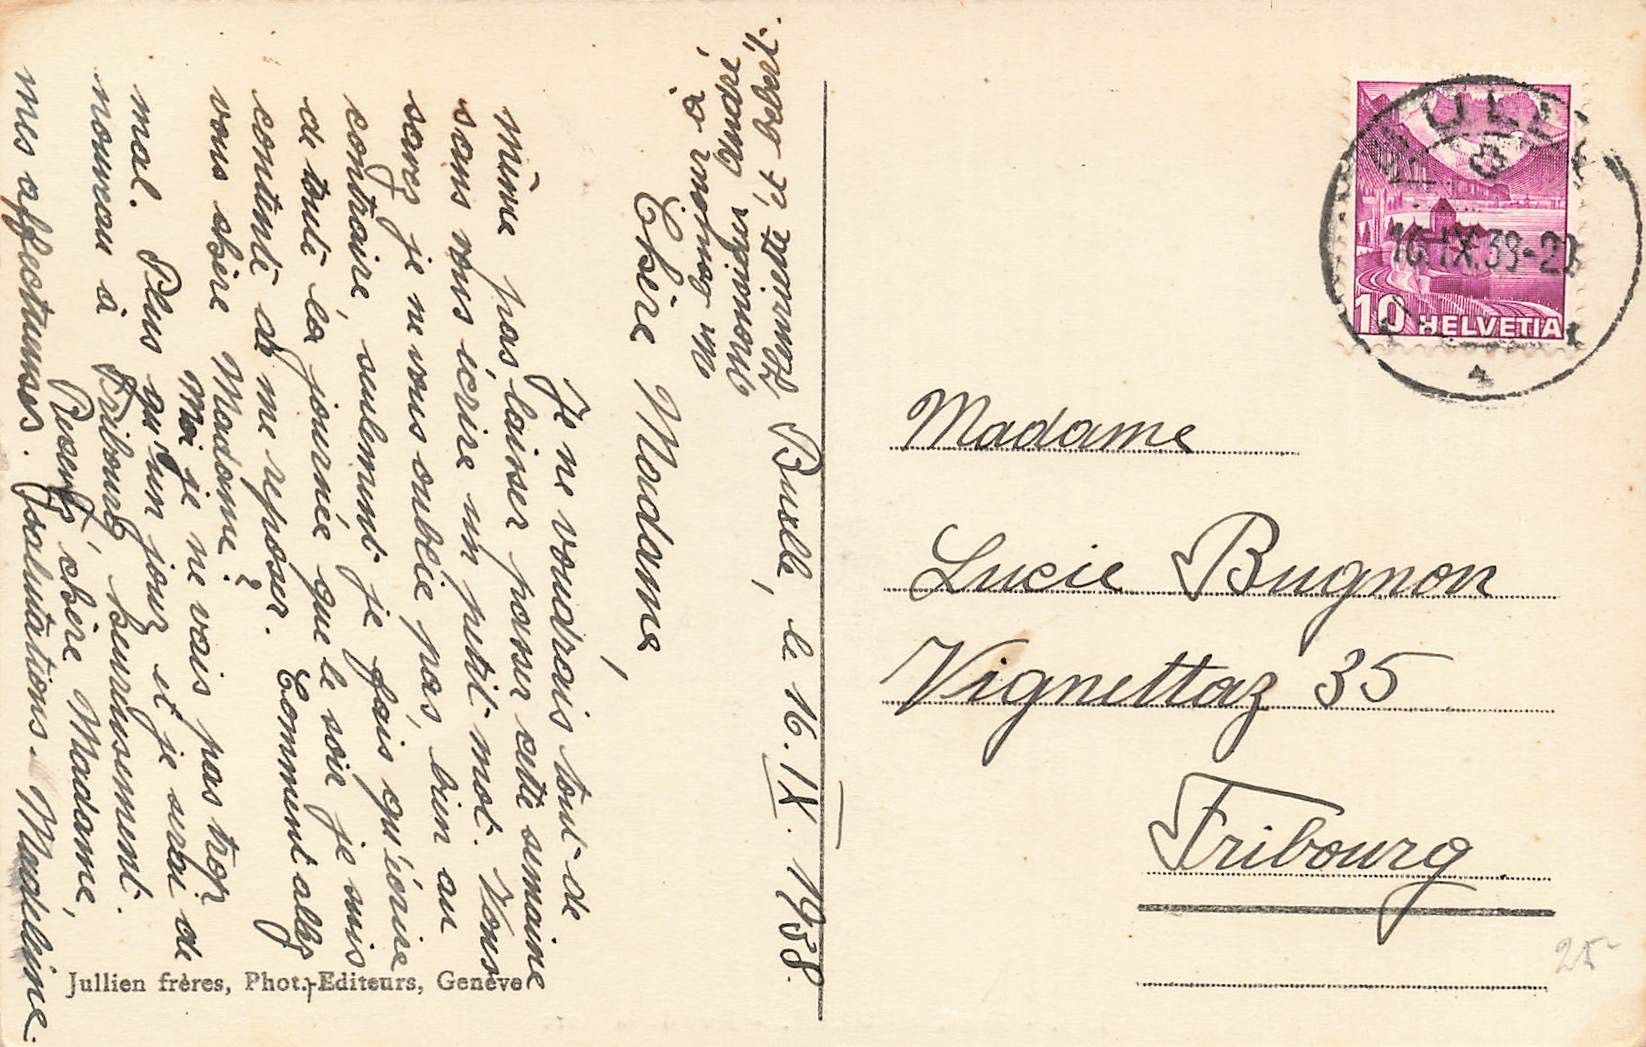 Bulle, le 16.IX.1938.
Chère Madame,
Je ne voudrais tout de
même pas laisser passer cette semaine
sans vous écrire un petit mot. Vous
savez je ne vous oublie pas, bien au
contraire, seulement je fais qu'écrire
de toute la journée que le soir je suis
contente de me reposer. Comment allez
vous chère Madame?
Moi je ne vais pas trop
mal. Plus qu'un jour et je serai de
nouveau à Fribourg, heureusement.
Recevez chère Madame,
mes affectueuses salutations. Madeline.
à
Monsieur André
Henriette et bébért.
Madame
Lucie Bugnon
Vignettaz 35
Fribourg
BULLE
16.IX.38-2
10 HELVETIA
Jullien frères, Phot.-Editeurs, Genève
25